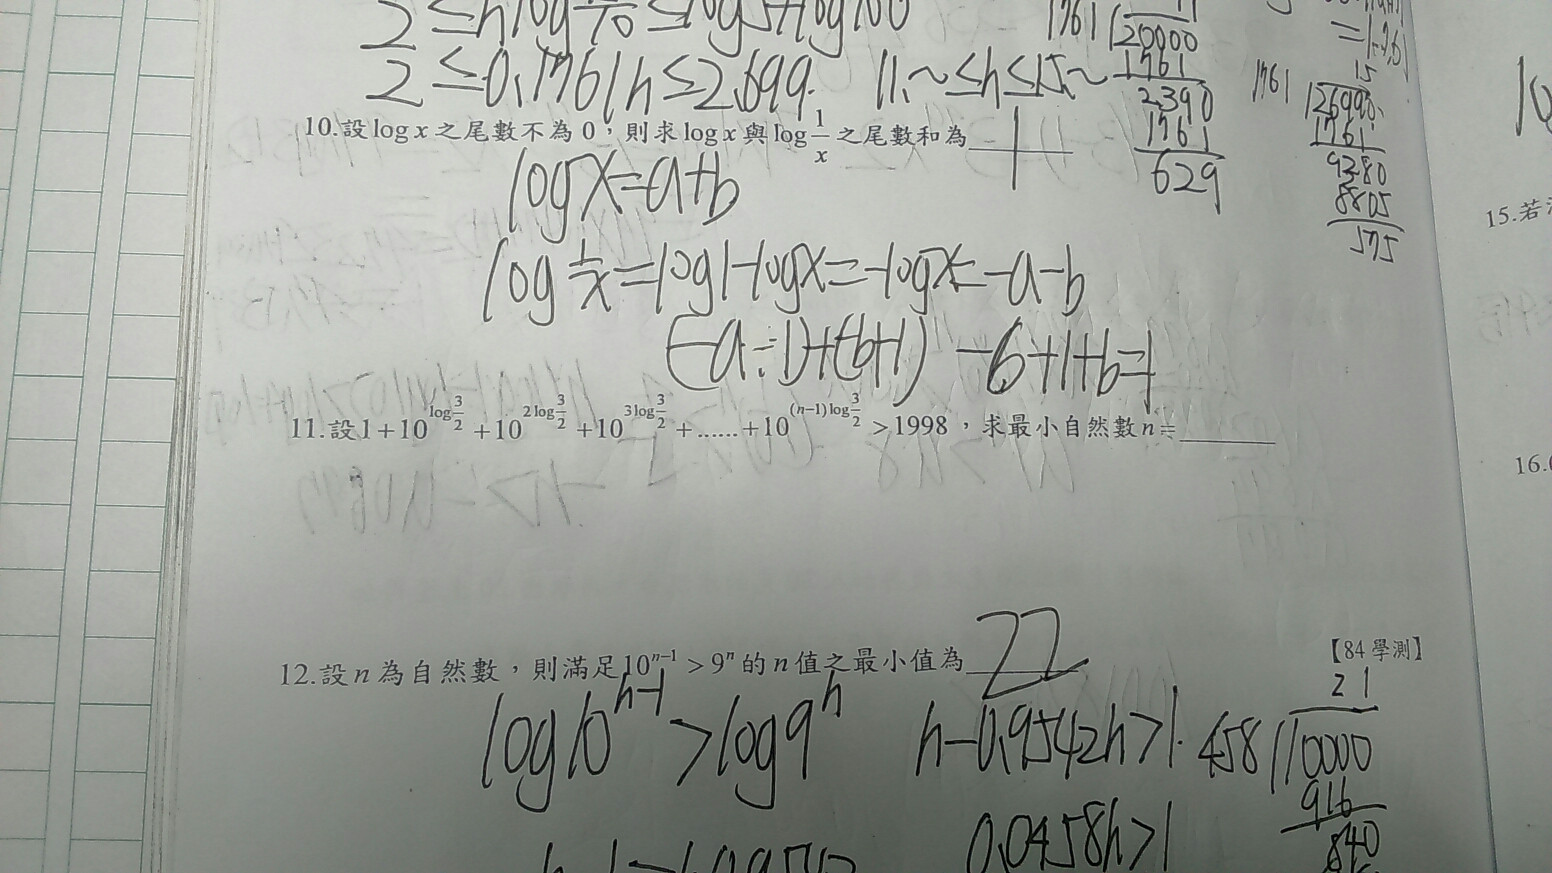 2≤0.1761n≤2.699. 11.~≤n≤15.~
10.設 log x 之尾數不為 0，則求 log x 與 log 1/x 之尾數和為 1
logx=a+b
log 1/x=log1-logx=-logx=-a-b
(-a-1)+(-b+1) -b+1+b=1
11.設1+10^(log 3/2)+10^(2log 3/2)+10^(3log 3/2)+......+10^((n-1)log 3/2)>1998，求最小自然數n=______
12.設n為自然數，則滿足10^(n-1)>9^n的n值之最小值為 22
【84學測】
log10^(n-1)>log9^n
n-0.9542n>1.
0.0458n>1
21
458
10000
916
840
1761
20000
1761
2390
1761
629
15
1761
26990.
1761
9380
8805
575
15.若
16.